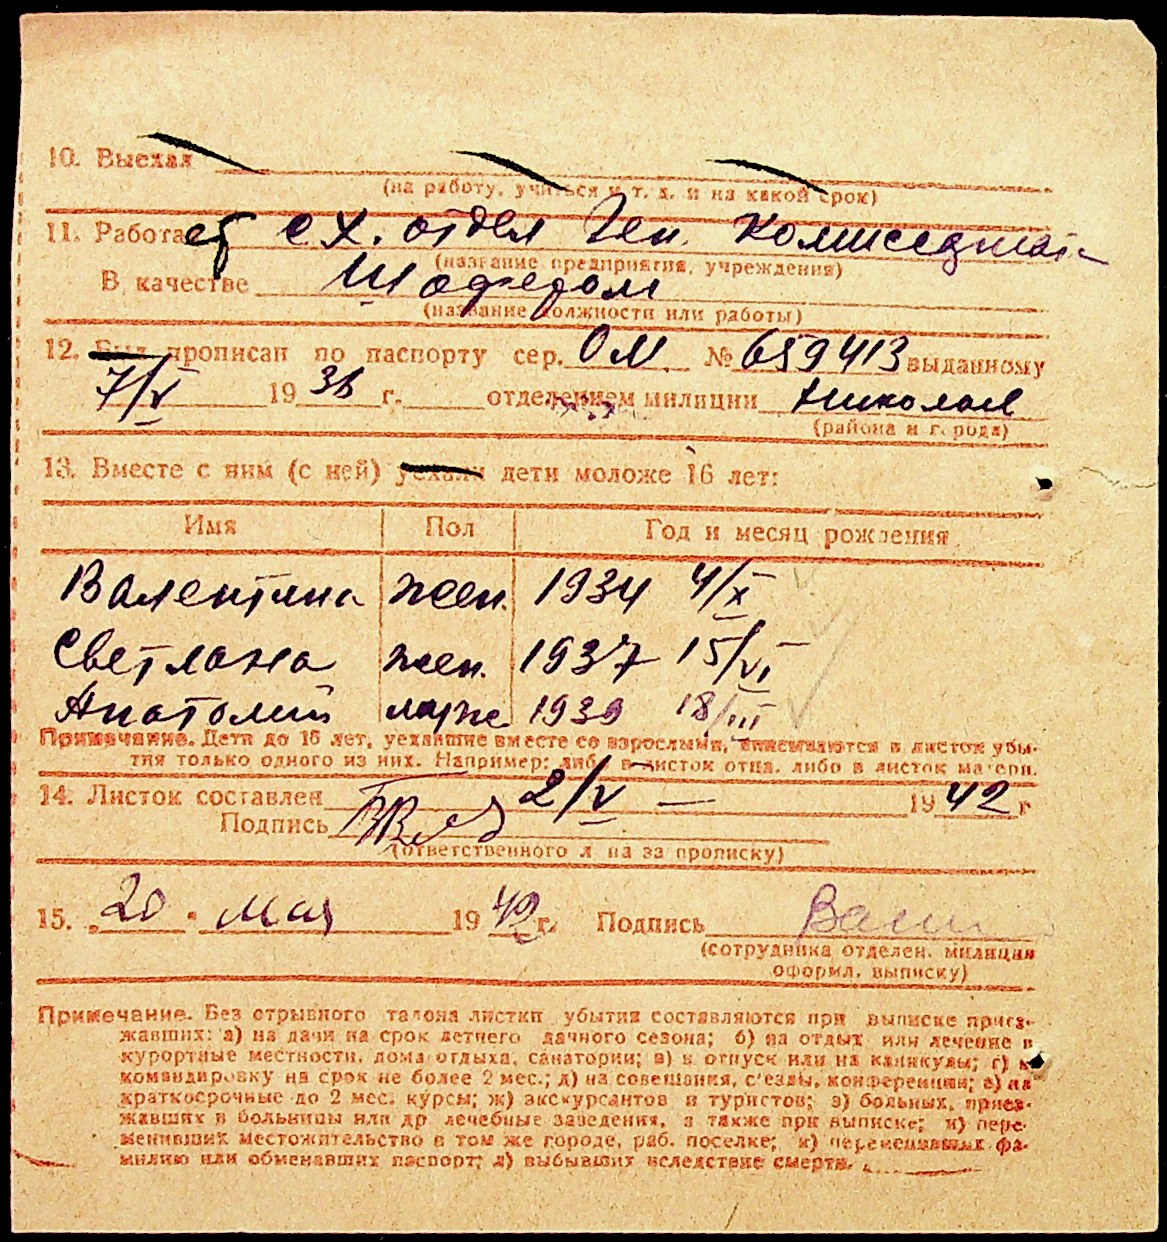 10. Выехал
(на работу, учиться и т. д. и на какой срок)
11. Работает с х. отдел Ген. Комиссариат
(название предприятия, учреждения)
В качестве Шофером
(название должности или работы)
12. Был прописан по паспорту сер. ОМ № 659413 выданному
7/V 1936 г. отделением милиции Николаев
(района и города)
13. Вместе с ним (с ней) уехали дети моложе 16 лет:
Имя Пол Год и месяц рождения
Валентина жен. 1934 4/X
Светлана жен. 1937 15/VI
Анатолий муж 1939 18/III
Примечание. Дети до 16 лет, уехавшие вместе со взрослыми, вписываются в листок убы-
тия только одного из них. Например: либо в листок отца, либо в листок матери.
14. Листок составлен 2/V — 1942 г
Подпись
(ответственного л на за прописку)
15. 20 " мая 1942 г. Подпись
(сотрудника отделен. милиции
оформл. выписку)
Примечание. Без отрывного талона листки убытия составляются при выписке приез-
жавших: а) на дачи на срок летнего дачного сезона; б) на отдых или лечение в
курортные местности, дома отдыха, санатории; в) в отпуск или на каникулы; г) в
командировку на срок не более 2 мес.; д) на совещания, с'езды, конференции; е) на
краткосрочные до 2 мес. курсы; ж) экскурсантов и туристов; з) больных, приез-
жавших в больницы или др лечебные заведения, а также при выписке; и) пере-
менивших местожительство в том же городе, раб. поселке; к) переменивших фа-
милию или обменавших паспорт; л) выбывших вследствие смерти.